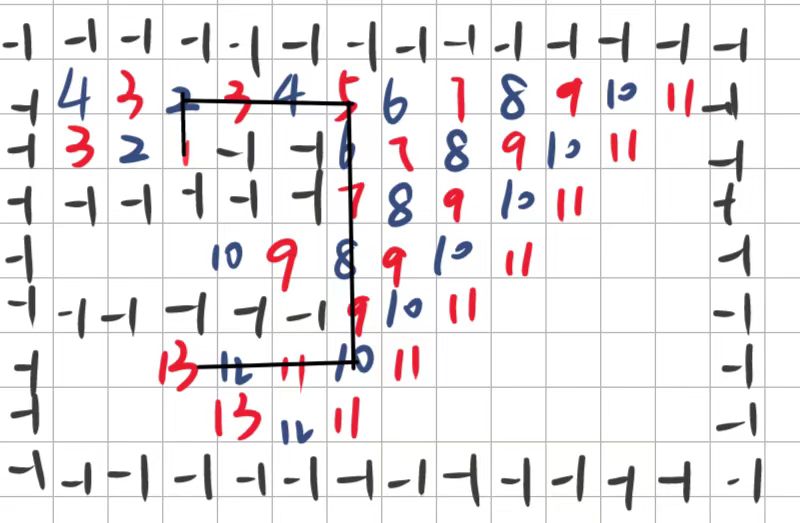 -1 -1 -1 -1 -1 -1 -1 -1 -1 -1 -1 -1 -1 -1
-1 4 3 2 3 4 5 6 7 8 9 10 11 -1
-1 3 2 1 -1 -1 6 7 8 9 10 11 -1
-1 -1 -1 -1 -1 -1 7 8 9 10 11 -1
-1 10 9 8 9 10 11 -1
-1 -1 -1 -1 -1 -1 9 10 11 -1
-1 13 12 11 10 11 -1
-1 13 12 11 -1
-1 -1 -1 -1 -1 -1 -1 -1 -1 -1 -1 -1 -1 -1